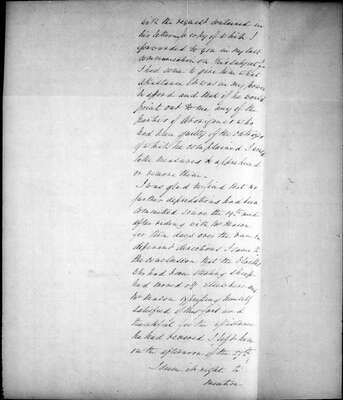 with the request contained in
his letter a copy of which I
forwarded to you in my last
communication on this subject
I had come to give him what
assistance it was in my power
to afford and that if he would
point out to me any of the
parties of Aborigines who
had been guilty of the outrages
of which he complained I would
take measures to apprehend
or remove them.
I was glad to find that no
further depredations had been
committed since the 19th and
after riding with Mr Mason
for three days over the run in
different directions I came to
the conclusion that the blacks
who had been stealing sheep
had moved off elsewhere and
Mr Mason expressing himself
satisfied of this fact and
thankful for the assistance
he had received I left him
on the afternoon of the 27th
I deem it right to
mention